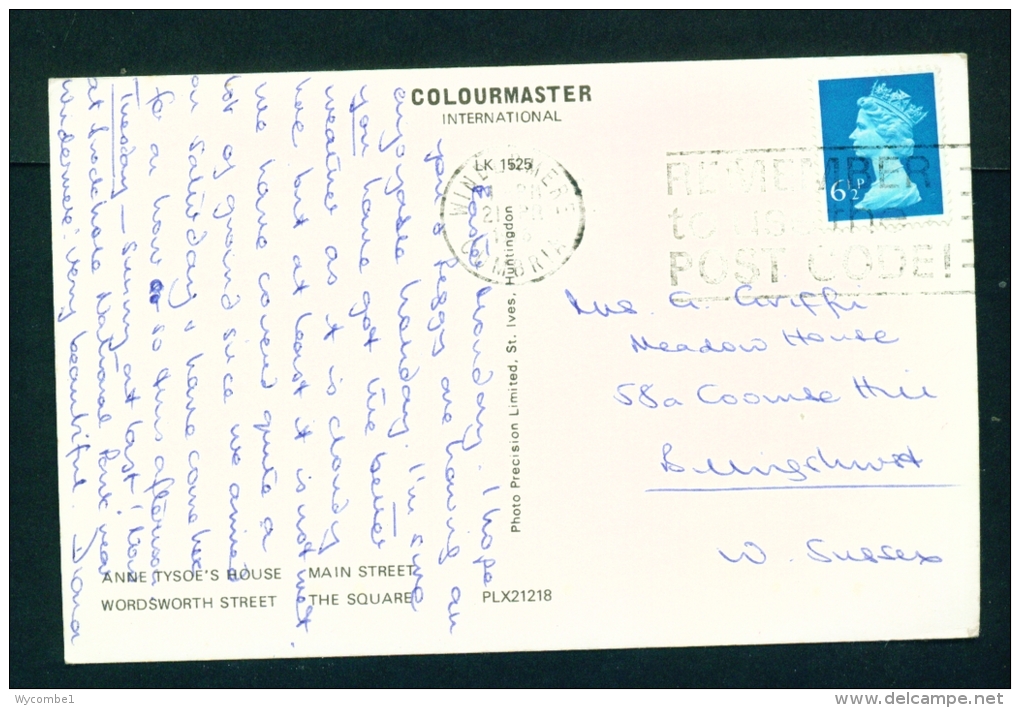 COLOURMASTER
INTERNATIONAL
LK 1525
WINDERMERE
CUMBRIA
REMEMBER
to use the
POST CODE!
6½P
Easter Monday. I hope
you & Peggy are having an
enjoyable holiday. I'm sure
you have got the better
weather as it is cloudy
here but at least it is not wet.
We have covered quite a
lot of ground since we arrived
on Saturday & have come here
for a how so this afternoon.
Tuesday – Sunny at last! Now
at National Park near
Windermere: very beautiful. Diana
Photo Precision Limited, St. Ives, Huntingdon
Mrs G. Griffin
Meadow House
58a Coombe Hill
Billingshurst
W. Sussex
ANNE TYSOE'S HOUSE MAIN STREET
WORDSWORTH STREET THE SQUARE PLX21218
Wycombe1
www.delcampe.net